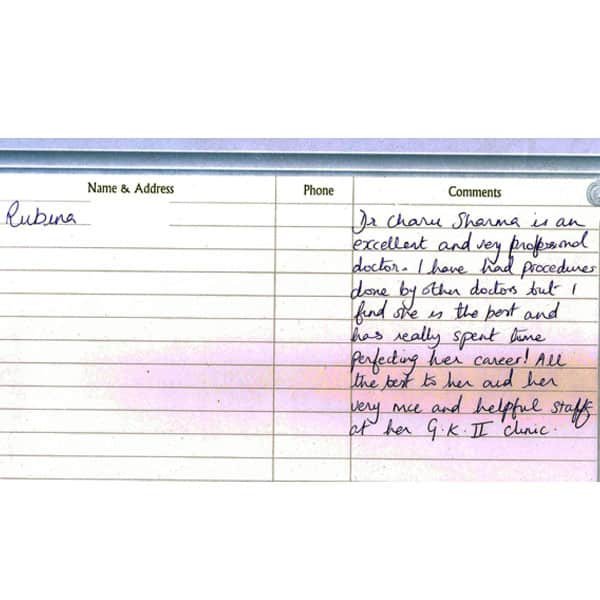 Name & Address Phone Comments
Rubina
Dr Charu Sharma is an
excellent and very professional
doctor. I have had procedures
done by other doctors but I
find she is the best and
has really spent time
perfecting her career! All
the best to her and her
very nice and helpful staff
at her G.K. II clinic.